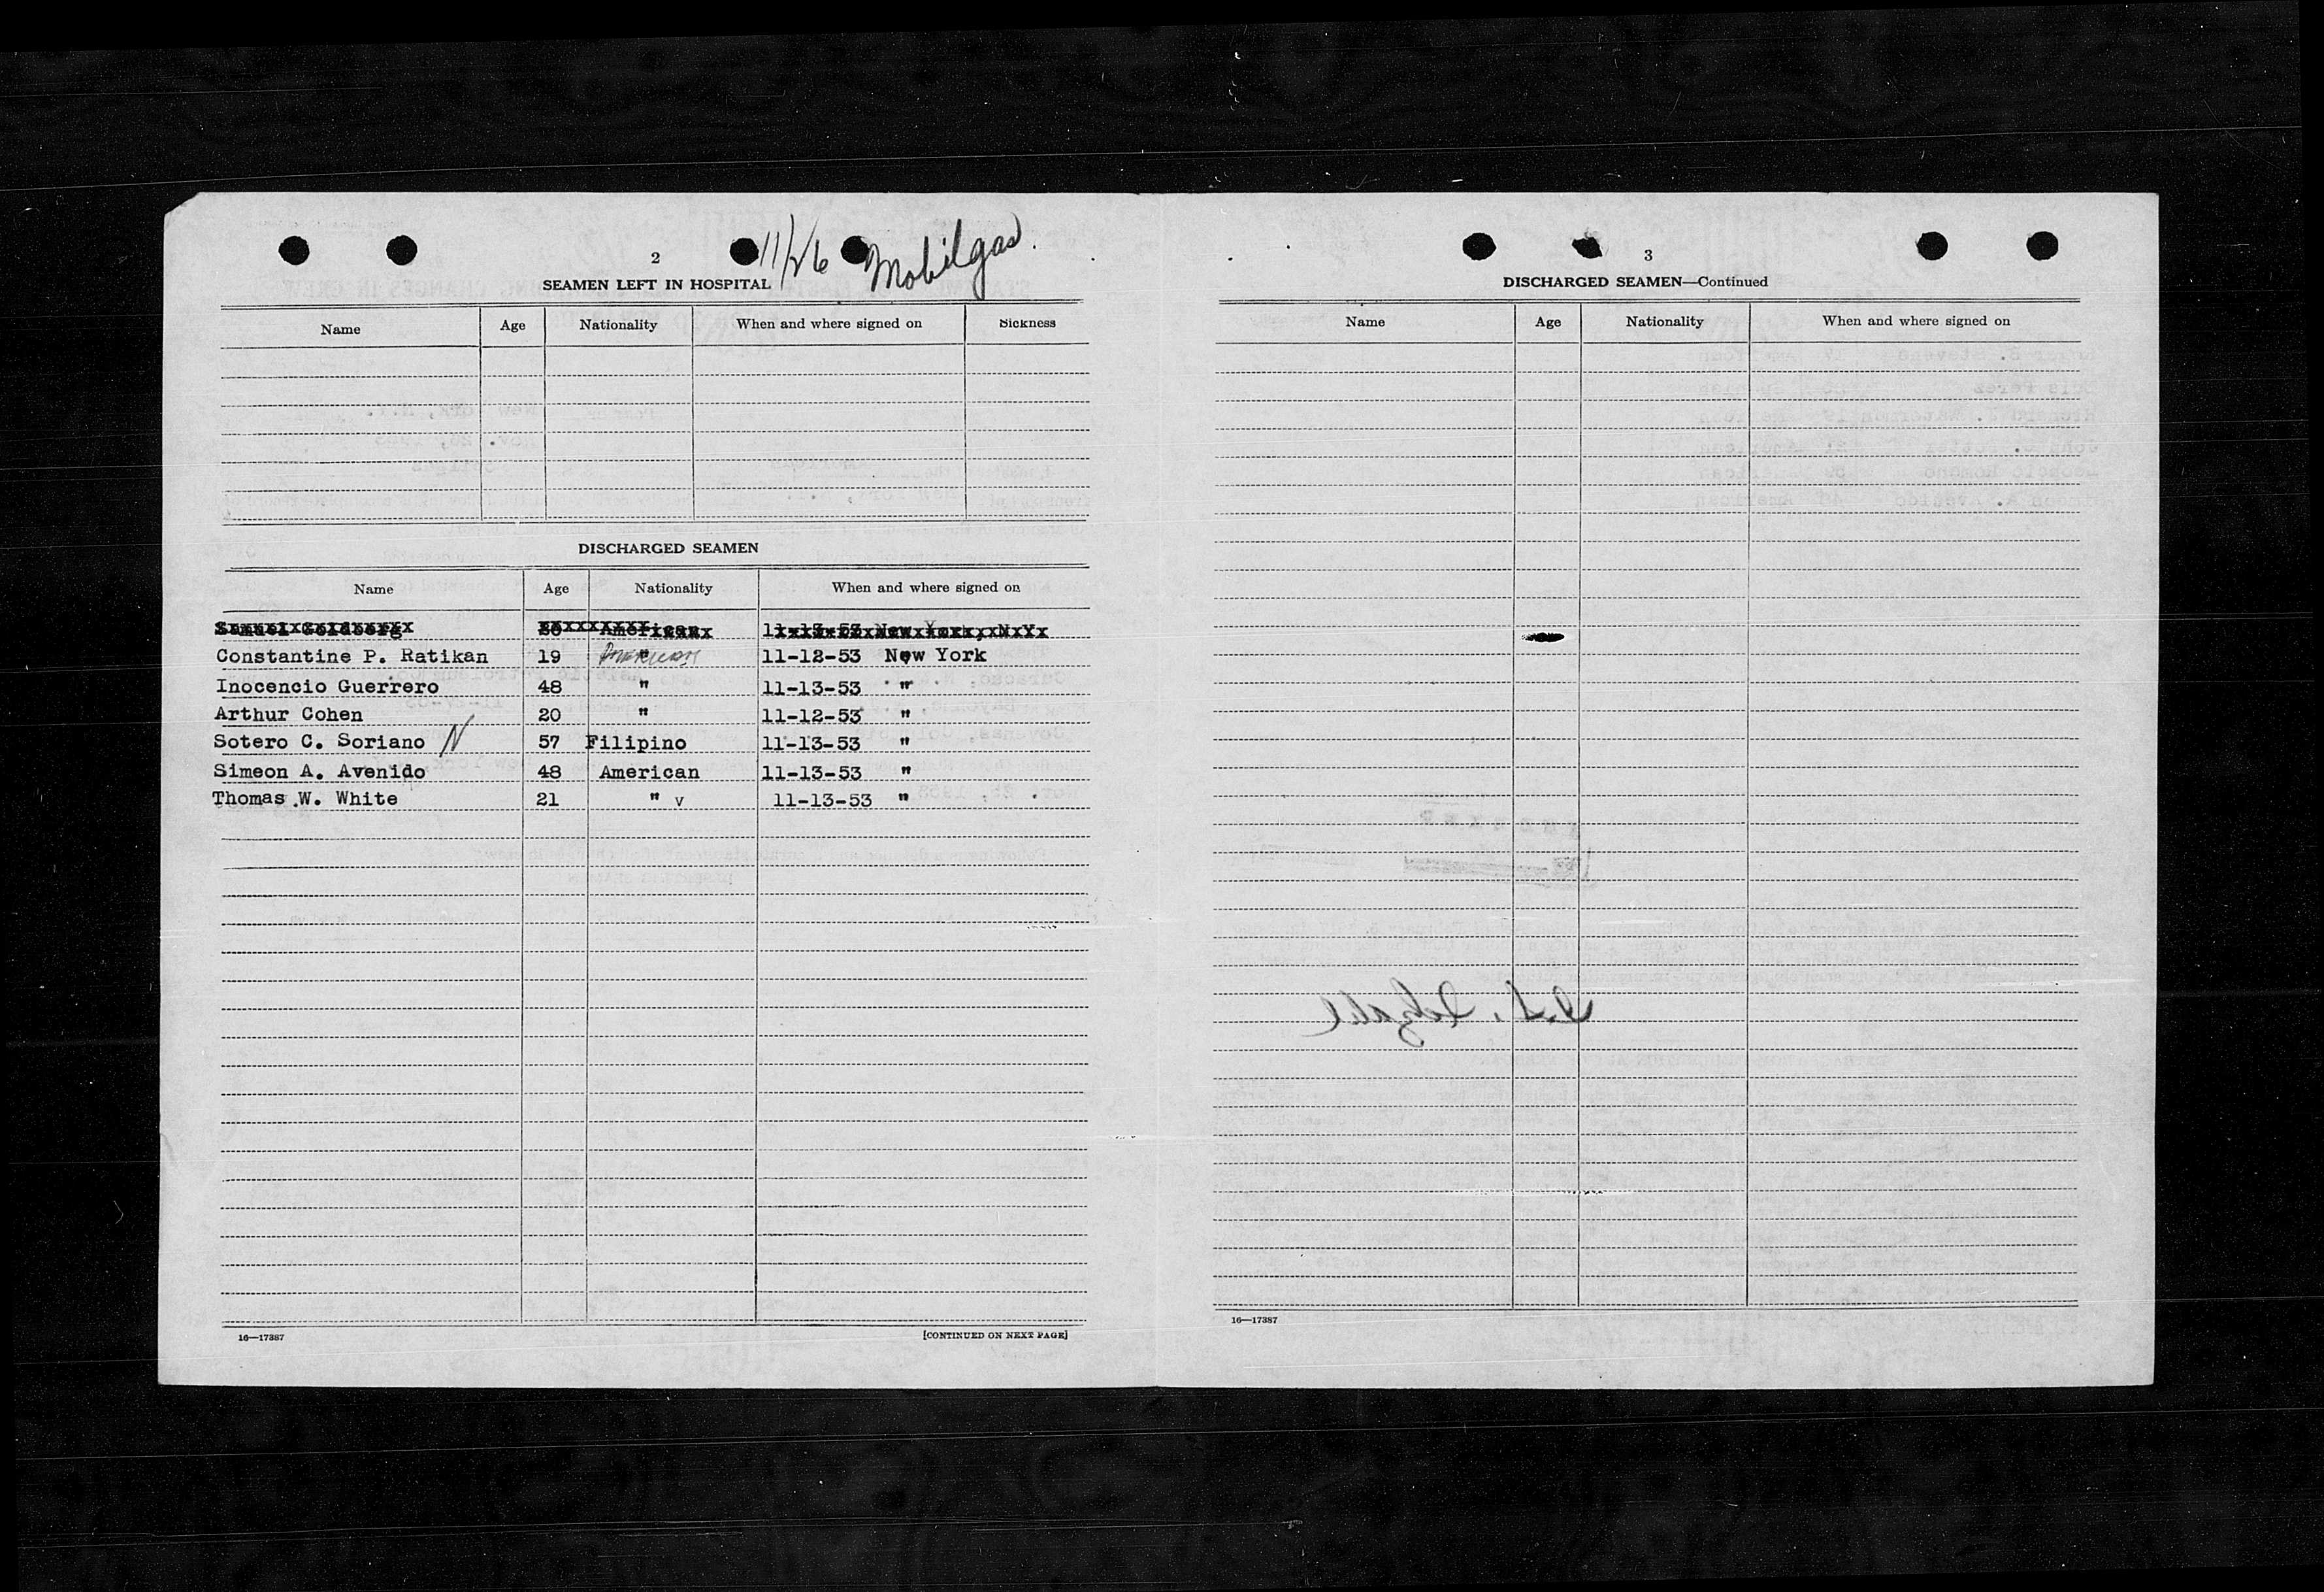 2
11/26 Mobilgas.
SEAMEN LEFT IN HOSPITAL
Name Age Nationality When and where signed on Sickness
DISCHARGED SEAMEN
Name Age Nationality When and where signed on
Samuel Goldberg American 11-13-53 New York, N.Y.
Constantine P. Ratikan 19 " American 11-12-53 New York
Inocencio Guerrero 48 " 11-13-53 "
Arthur Cohen 20 " 11-12-53 "
Sotero C. Soriano N 57 Filipino 11-13-53 "
Simeon A. Avenido 48 American 11-13-53 "
Thomas W. White 21 " v 11-13-53 "
16—17387 [CONTINUED ON NEXT PAGE]
3
DISCHARGED SEAMEN—Continued
Name Age Nationality When and where signed on
16—17387